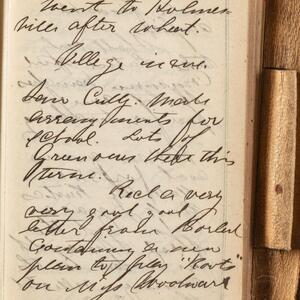 went to Holmes-
ville after wheat.
Village in eve.
Saw Cully. Made
arrangements for
school. Lots of
Green ones there this
term.
Recd a very
very good good
letter from
containing a new
plan to play "Roots"
on Miss Woodward